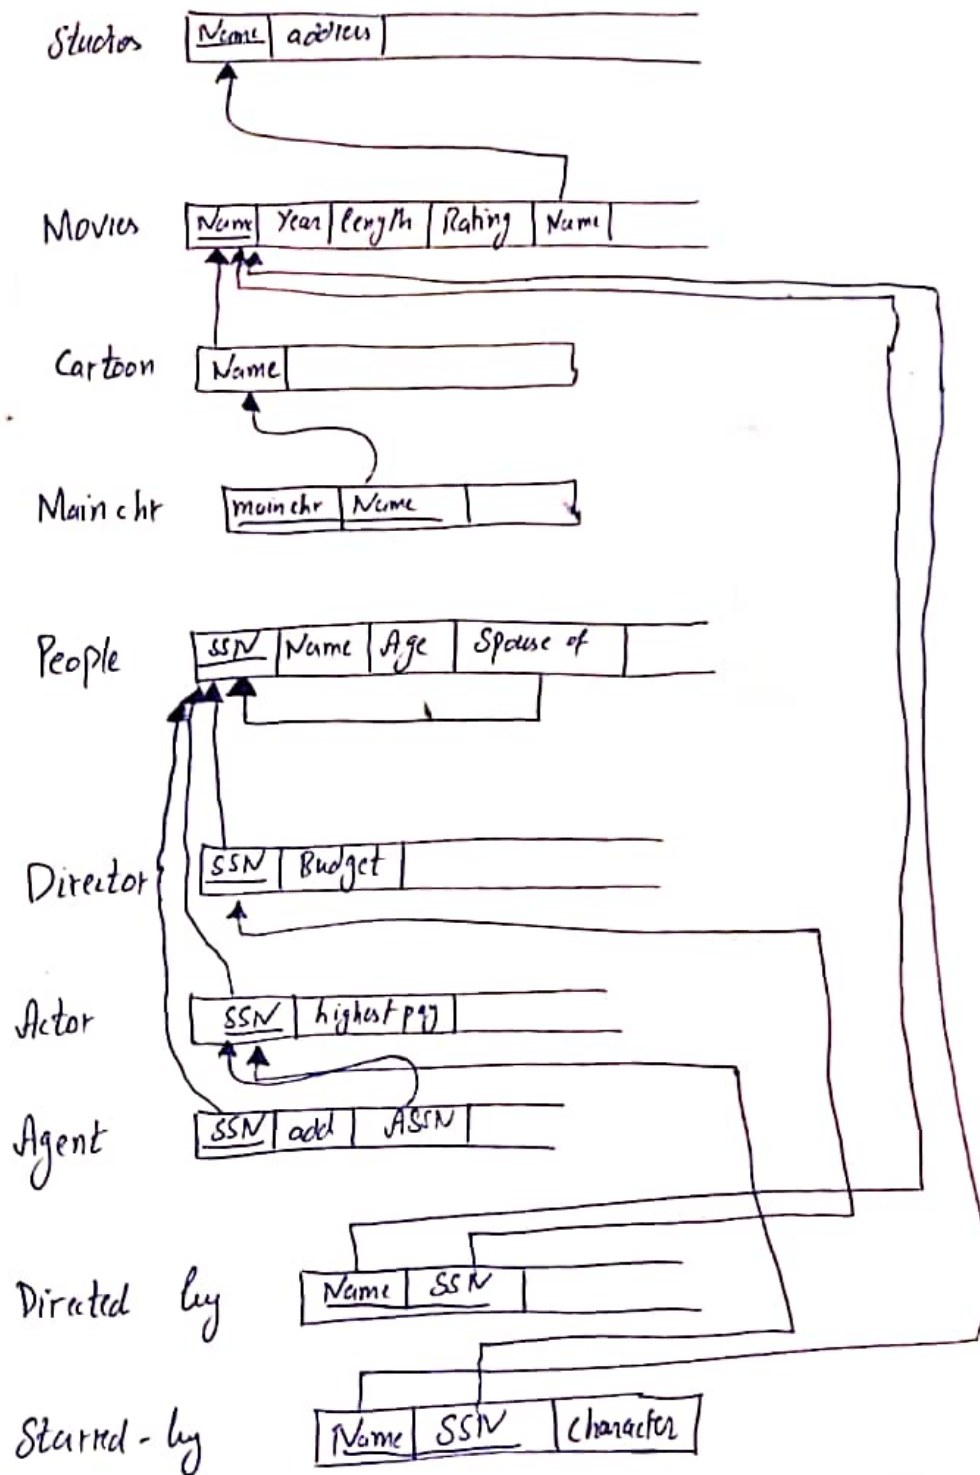 Studios Name address
Movies Name Year length Rating Name
Cartoon Name
Main chr mainchr Name
People SSN Name Age Spouse of
Director SSN Budget
Actor SSN highest pay
Agent SSN add ASSN
Directed by Name SSN
Starred-by Name SSN Character